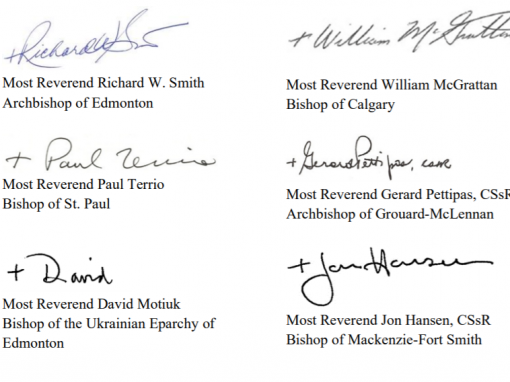 +Richard W Smith
Most Reverend Richard W. Smith
Archbishop of Edmonton
+ William McGrattan
Most Reverend William McGrattan
Bishop of Calgary
+ Paul Terrio
Most Reverend Paul Terrio
Bishop of St. Paul
+ Gerard Pettipas, cssr
Most Reverend Gerard Pettipas, CSsR
Archbishop of Grouard-McLennan
+ David
Most Reverend David Motiuk
Bishop of the Ukrainian Eparchy of
Edmonton
+ Jon Hansen
Most Reverend Jon Hansen, CSsR
Bishop of Mackenzie-Fort Smith